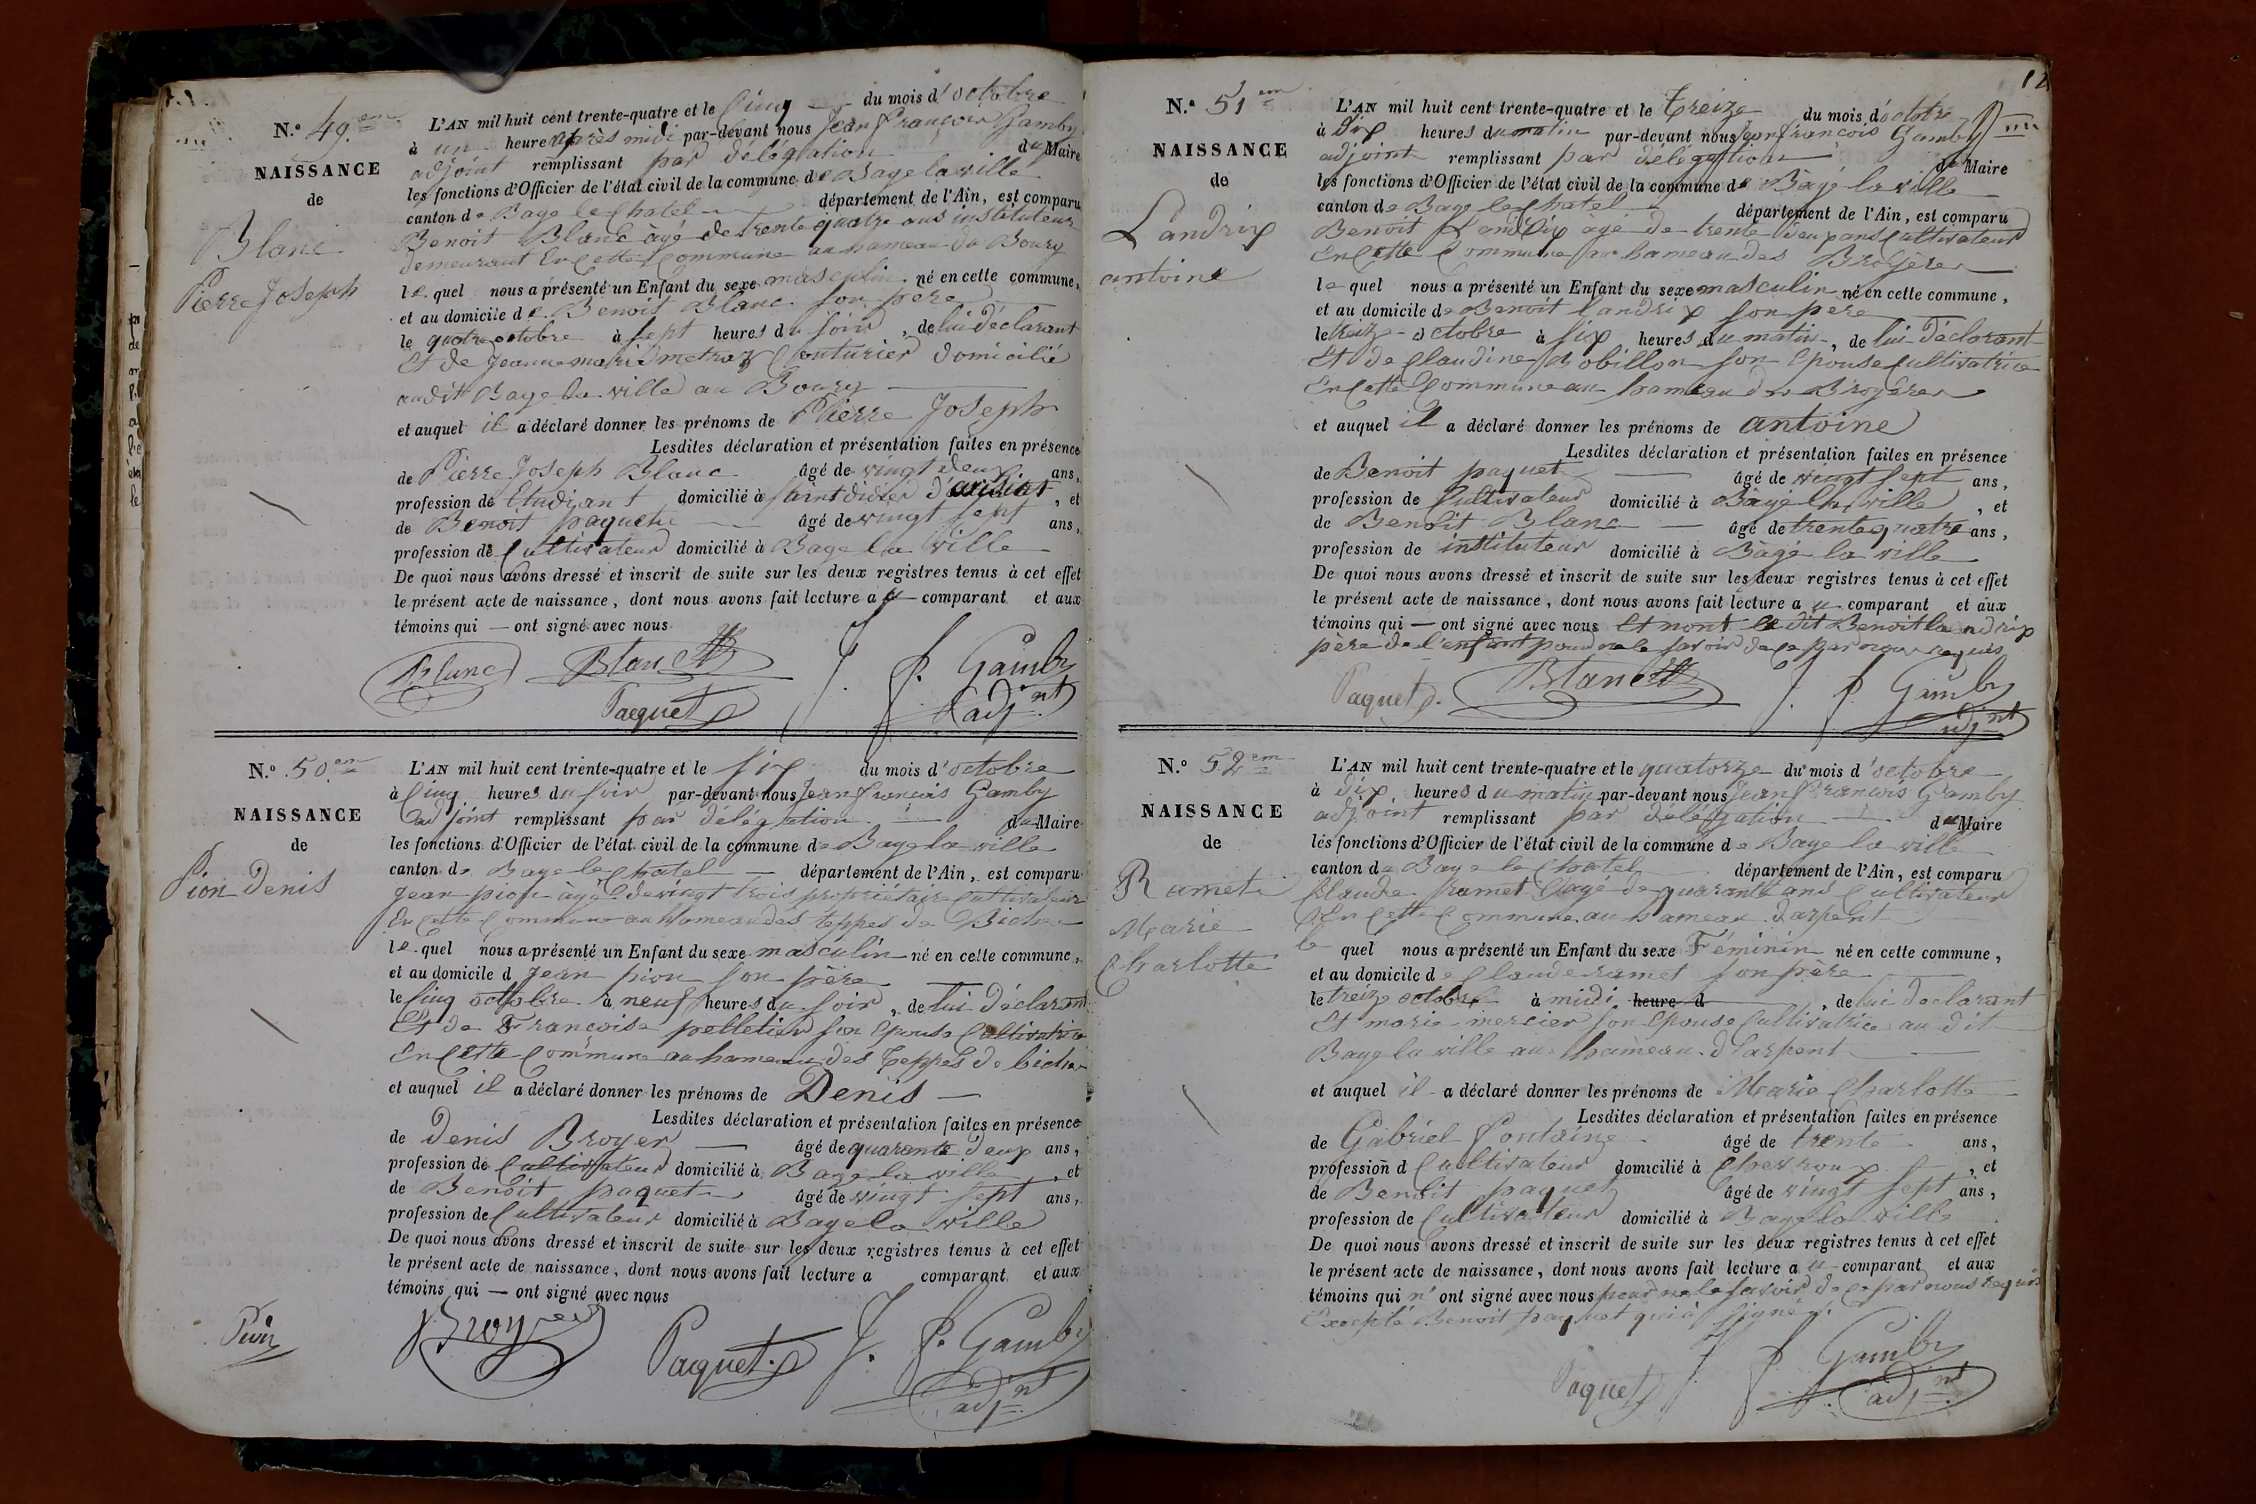 N.° 49.em
NAISSANCE
de
Blanc
Pierre Joseph
L'AN mil huit cent trente-quatre et le Cinq du mois d'octobre
à un heure après midi par-devant nous Jean françois Gamby
adjoint remplissant par délégation du Maire
les fonctions d'Officier de l'état civil de la commune de Bage la ville
canton de Bage le Chatel département de l'Ain, est comparu
Benoit Blanc âgé de trente quatre ans instituteur
demeurant En Cette Commune au hameau du Bourg
le quel nous a présenté un Enfant du sexe masculin né en cette commune,
et au domicile de Benoit Blanc son père
le quatre octobre à sept heures du soir, de lui déclarant
Et de Jeanne marie metraz Couturier domicilié
audit Bage la ville au Bourg
et auquel il a déclaré donner les prénoms de Pierre Joseph
Lesdites déclaration et présentation faites en présence
de Pierre Joseph Blanc âgé de vingt deux ans,
profession de Etudiant domicilié à saint didier d', et
de Benoit paquet âgé de vingt sept ans,
profession de Cultivateur domicilié à Bage la Ville
De quoi nous avons dressé et inscrit de suite sur les deux registres tenus à cet effet
le présent acte de naissance, dont nous avons fait lecture au comparant et aux
témoins qui — ont signé avec nous
Blanc Blanc J. f. Gamby
Paquet adj.nt
N.° 50.em
NAISSANCE
de
Pion Denis
L'AN mil huit cent trente-quatre et le six du mois d'octobre
à Cinq heures du soir par-devant nous Jean françois Gamby
adjoint remplissant par délégation du Maire
les fonctions d'Officier de l'état civil de la commune de Bage la ville
canton de Bage le chatel département de l'Ain, est comparu
Jean pion âgé de vingt trois propriétaire Cultivateur
En Cette Commune au hameau des teppes de Biches
le quel nous a présenté un Enfant du sexe masculin né en cette commune,
et au domicile d Jean pion son père
le Cinq octobre à neuf heures du soir, de lui déclarant
Et de Françoise pelletier son Epouse Cultivatrice
En Cette Commune au hameau des teppes de biches
et auquel il a déclaré donner les prénoms de Denis
Lesdites déclaration et présentation faites en présence
de Denis Broyer âgé de quarante deux ans,
profession de Cultivateur domicilié à Bage la ville, et
de Benoit paquet âgé de vingt sept ans,
profession de Cultivateur domicilié à Bage la ville
De quoi nous avons dressé et inscrit de suite sur les deux registres tenus à cet effet
le présent acte de naissance, dont nous avons fait lecture a comparant et aux
témoins qui — ont signé avec nous
Pion Broyer Paquet J. f. Gamby
adj.nt
12
N.° 51em
NAISSANCE
de
Landrix
antoine
L'AN mil huit cent trente-quatre et le treize du mois d'octobre
à dix heures du matin par-devant nous Jean françois Gamby
adjoint remplissant par délégation du Maire
les fonctions d'Officier de l'état civil de la commune de Bàgé la ville
canton de Bage le Chatel département de l'Ain, est comparu
Benoit Landrix âgé de trente deux ans Cultivateur
En Cette Commune au hameau des Broyères
le quel nous a présenté un Enfant du sexe masculin né en cette commune,
et au domicile de Benoit landrix son père
le treize octobre à six heures du matin, de lui déclarant
Et de Claudine Robillon son Epouse Cultivatrice
En Cette Commune au hameau des Broyères
et auquel il a déclaré donner les prénoms de antoine
Lesdites déclaration et présentation faites en présence
de Benoit paquet âgé de vingt sept ans,
profession de Cultivateur domicilié à Bàgé la ville, et
de Benoit Blanc âgé de trente quatre ans,
profession de instituteur domicilié à Bàgé la ville
De quoi nous avons dressé et inscrit de suite sur les deux registres tenus à cet effet
le présent acte de naissance, dont nous avons fait lecture au comparant et aux
témoins qui — ont signé avec nous Et nont le dit Benoit landrix
père de l'enfant pour ne le savoir de ce par nous requis
Paquet. Blanc J. f. Gamby
adj.nt
N.° 52em
NAISSANCE
de
Ramet
Marie
Charlotte
L'AN mil huit cent trente-quatre et le quatorze du mois d'octobre
à dix heures du matin par-devant nous Jean François Gamby
adjoint remplissant par délégation du Maire
les fonctions d'Officier de l'état civil de la commune de Bage la ville
canton de Bage le Chatel département de l'Ain, est comparu
Claude ramet âgé de quarante ans Cultivateur
En Cette Commune au hameau darpent
le quel nous a présenté un Enfant du sexe Féminin né en cette commune,
et au domicile de Claude ramet son père
le treize octobre à midi heure d, de lui déclarant
Et marie mercier son Epouse Cultivatrice au dit
Bage la ville au hameau d'arpent
et auquel il a déclaré donner les prénoms de Marie Charlotte
Lesdites déclaration et présentation faites en présence
de Gabriel Fontaine âgé de trente ans,
profession d Cultivateur domicilié à Chevroux, et
de Benoit paquet âgé de vingt sept ans,
profession de Cultivateur domicilié à Bage la ville
De quoi nous avons dressé et inscrit de suite sur les deux registres tenus à cet effet
le présent acte de naissance, dont nous avons fait lecture au comparant et aux
témoins qui n'ont signé avec nous pour ne le savoir de ce par nous requis
Excepté Benoit paquet qui à signé.
Paquet J. f. Gamby
adj.nt